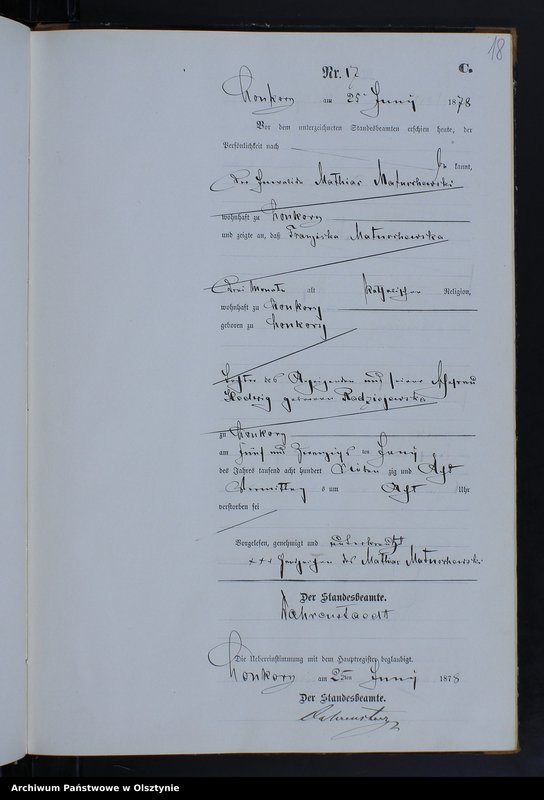 18
Nr. 17 C.
Honkory am 25 Juny 1878
Vor dem unterzeichneten Standesbeamten erschien heute, der
Persönlichkeit nach
kannt,
der Invalide Mathias Maturchowski
wohnhaft zu Honkory
und zeigte an, daß Franziska Maturchowska
drei Monate alt katholischer Religion,
wohnhaft zu Honkory
geboren zu Honkory
Tochter des Anzeigenden und seiner Ehefrau
Hedwig geborenen Radziejewska
zu Honkory
am fünf und zwanzigs ten Juny
des Jahres tausend acht hundert sieben zig und Acht
Vormittag s um Acht Uhr
verstorben sei
Vorgelesen, genehmigt und unterkreuzt
+++ Handzeichen des Mathias Maturchowski
Der Standesbeamte.
Die Uebereinstimmung mit dem Hauptregister beglaubigt.
Honkory am 25ten Juny 1878
Der Standesbeamte.
Archiwum Państwowe w Olsztynie